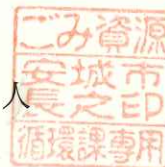 ごみ資源
安城市
長之印
循環課専用
人